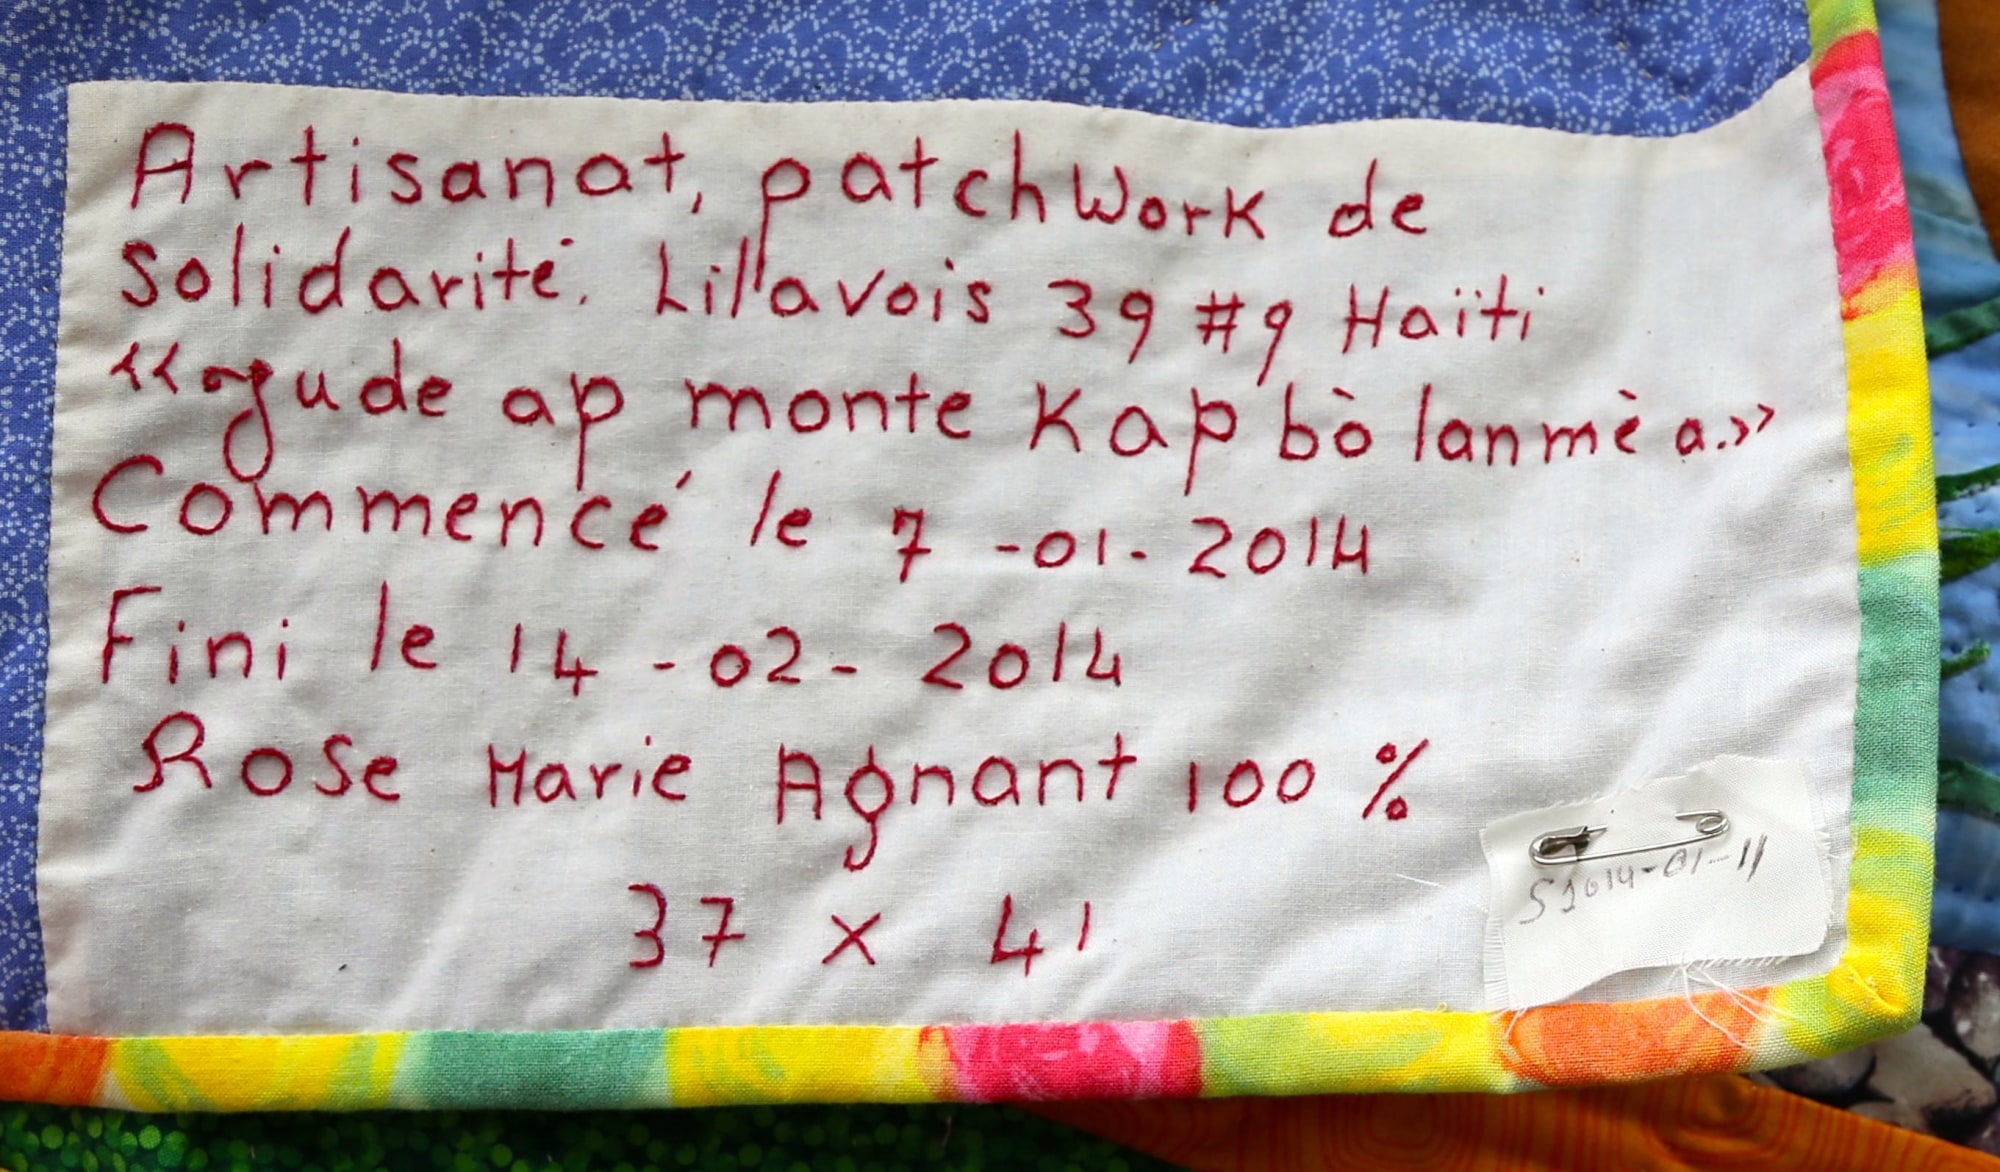 Artisanat, patchWork de
solidarité. Lillavois 39 #9 Haïti
‹‹agude ap monte Kap bò lanmè a.››
Commencé le 7 -01-2014
Fini le 14 -02- 2014
Rose Marie Agnant 100 %
37 x 41
S2014-01-11